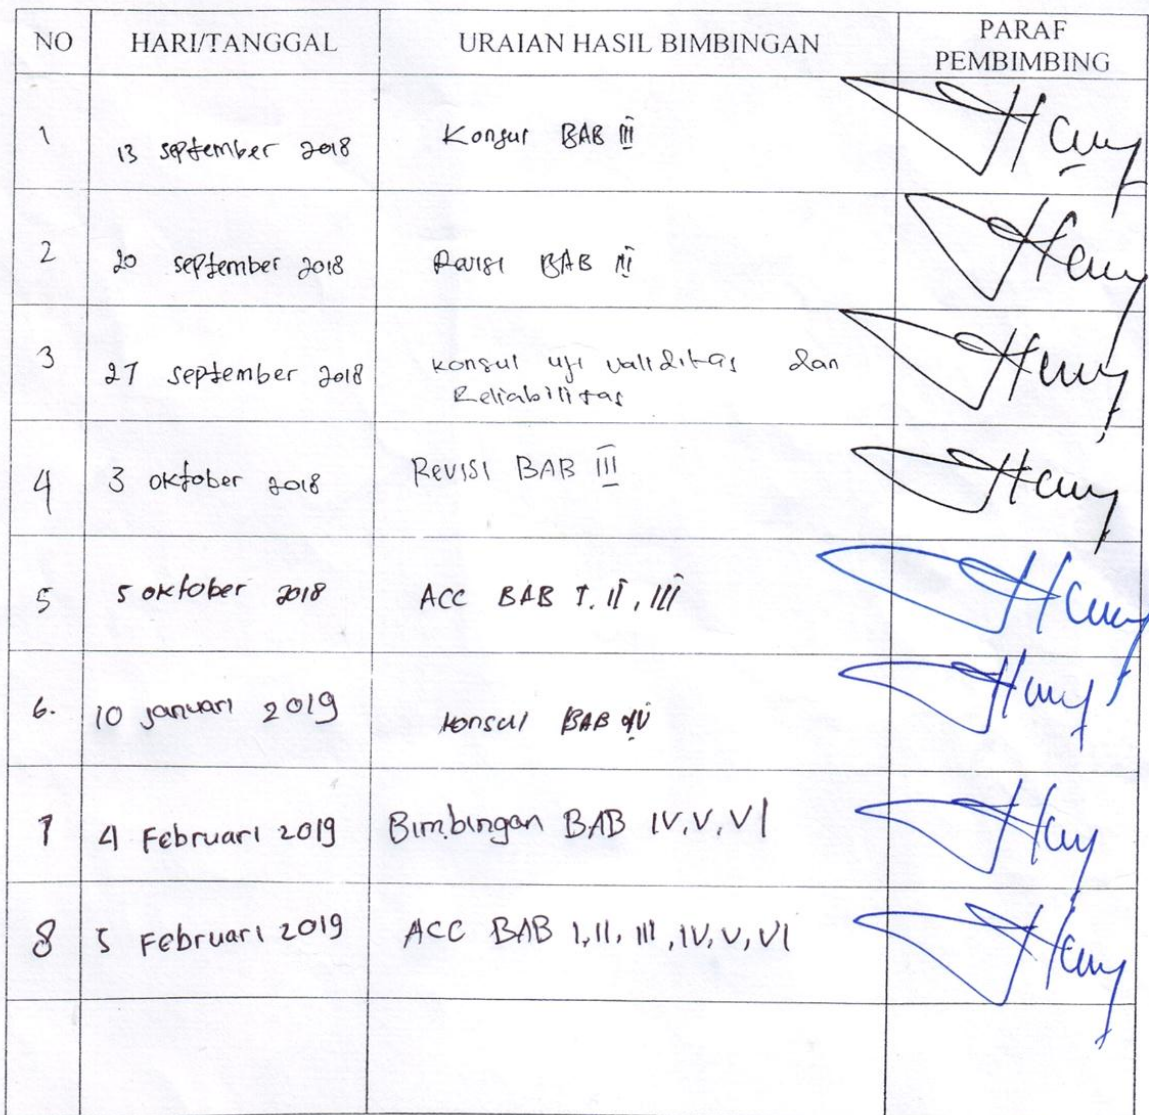 NO HARI/TANGGAL URAIAN HASIL BIMBINGAN PARAF PEMBIMBING
1 13 september 2018 Konsul BAB III
2 20 september 2018 Revisi BAB III
3 27 september 2018 konsul uji validitas dan
Reliabilitas
4 3 oktober 2018 Revisi BAB III
5 5 oktober 2018 ACC BAB I, II, III
6. 10 januari 2019 konsul BAB IV
7 4 Februari 2019 Bimbingan BAB IV, V, VI
8 5 Februari 2019 ACC BAB I, II, III, IV, V, VI